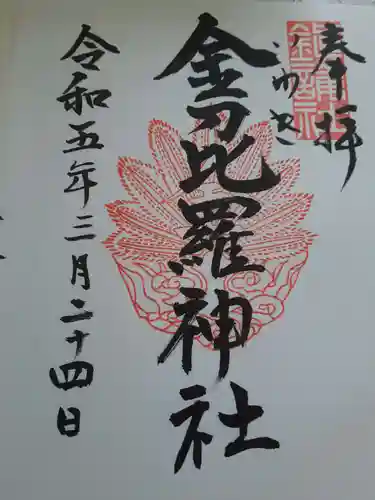 奉拝
いわき
金刀比羅神社
令和五年三月二十四日